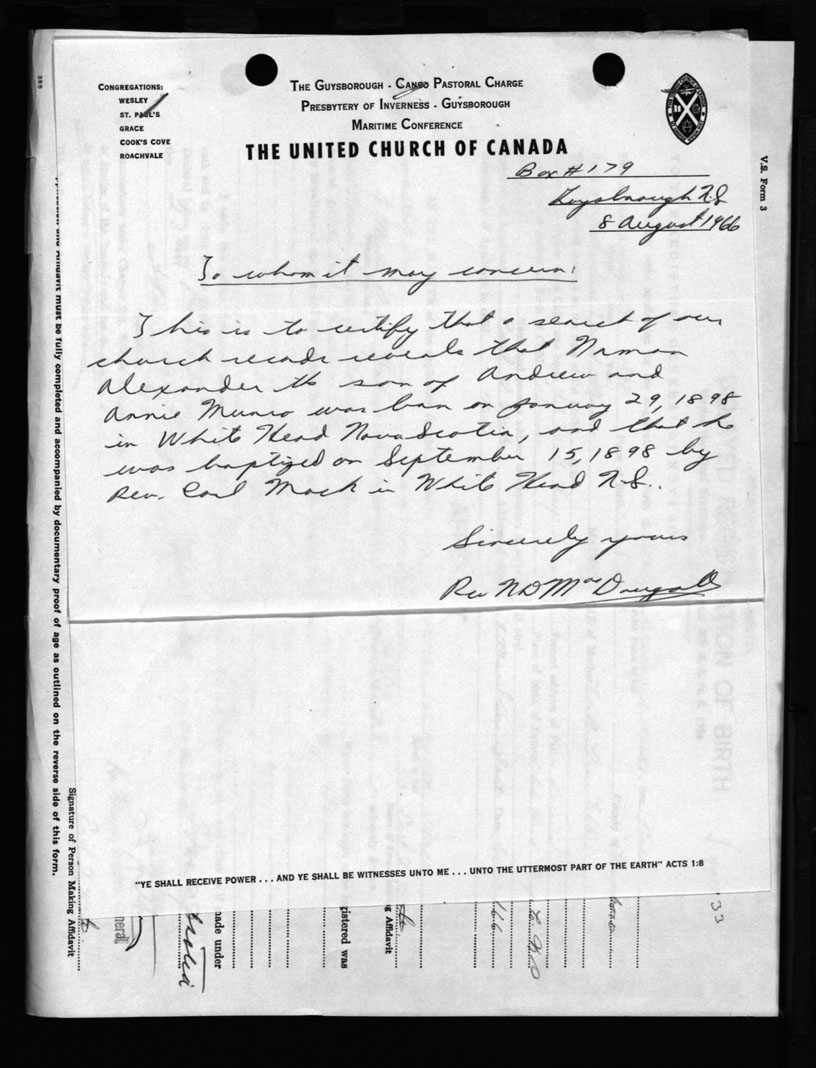 CONGREGATIONS:
WESLEY
ST. PAUL'S
GRACE
COOK'S COVE
ROACHVALE
THE GUYSBOROUGH - CANSO PASTORAL CHARGE
PRESBYTERY OF INVERNESS - GUYSBOROUGH
MARITIME CONFERENCE
THE UNITED CHURCH OF CANADA
Box #179
Guysborough N.S
8 August 1966
To whom it may concern:
This is to certify that a search of our
church records reveals that Norman
Alexander the son of Andrew and
Annie Munro was born on January 29, 1898
in White Head Nova Scotia, and that he
was baptized on September 15, 1898 by
Rev. Carl Mack in White Head N.S..
Sincerely yours
Rev N D MacDougall
"YE SHALL RECEIVE POWER . . . AND YE SHALL BE WITNESSES UNTO ME . . . UNTO THE UTTERMOST PART OF THE EARTH" ACTS 1:8
V.S. Form 3
must be fully completed and accompanied by documentary proof of age as outlined on the reverse side of this form.
Signature of Person Making Affidavit
made under
gistered was
g Affidavit
neral